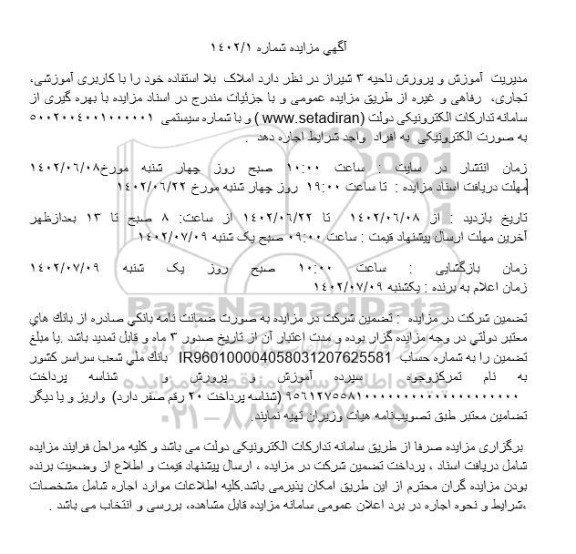 آگهي مزايده شماره ١٤٠٢/١
مدیریت آموزش و پرورش ناحیه ۳ شیراز در نظر دارد املاک بلا استفاده خود را با کاربری آموزشی،
تجاری، رفاهی و غیره از طریق مزایده عمومی و با جزئیات مندرج در اسناد مزایده با بهره گیری از
سامانه تدارکات الکترونیکی دولت (www.setadiran) و با شماره سیستمی ۵۰۰۲۰۰۴۰۰۱۰۰۰۰۰۱
به صورت الکترونیکی به افراد واجد شرایط اجاره دهد .
زمان انتشار در سایت : ساعت ۱۰:۰۰ صبح روز چهار شنبه مورخ۱۴۰۲/۰۶/۰۸
مهلت دریافت اسناد مزایده : تا ساعت ۱۹:۰۰ روز چهار شنبه مورخ ۱۴۰۲/۰۶/۲۲
تاریخ بازدید : از ۱۴۰۲/۰۶/۰۸ تا ۱۴۰۲/۰۶/۲۲ از ساعت: ۸ صبح تا ۱۳ بعدازظهر
آخرین مهلت ارسال پیشنهاد قیمت : ساعت ۰۹:۰۰ صبح یک شنبه ۱۴۰۲/۰۷/۰۹
زمان بازگشایی : ساعت ۱۰:۰۰ صبح روز یک شنبه ۱۴۰۲/۰۷/۰۹
زمان اعلام به برنده : یکشنبه ۱۴۰۲/۰۷/۰۹
تضمین شرکت در مزایده : تضمین شرکت در مزایده به صورت ضمانت نامه بانکي صادره از بانك هاي
معتبر دولتي در وجه مزایده گزار بوده و مدت اعتبار آن از تاریخ صدور ۳ ماه و قابل تمدید باشد .یا مبلغ
تضمین را به شماره حساب IR960100004058031207625581 بانك ملي شعب سراسر کشور
به نام تمرکزوجوه سپرده آموزش و پرورش و شناسه پرداخت
(شناسه پرداخت ۲۰ رقم صفر دارد) واریز و یا دیگر
تضامین معتبر طبق تصویب‌نامه هیات وزیران تهیه نمایند.
برگزاری مزایده صرفا از طریق سامانه تدارکات الکترونیکی دولت می باشد و کلیه مراحل فرایند مزایده
شامل دریافت اسناد ، پرداخت تضمین شرکت در مزایده ، ارسال پیشنهاد قیمت و اطلاع از وضعیت برنده
بودن مزایده گران محترم از این طریق امکان پذیرمی باشد.کلیه اطلاعات موارد اجاره شامل مشخصات
،شرایط و نحوه اجاره در برد اعلان عمومی سامانه مزایده قابل مشاهده، بررسی و انتخاب می باشد .